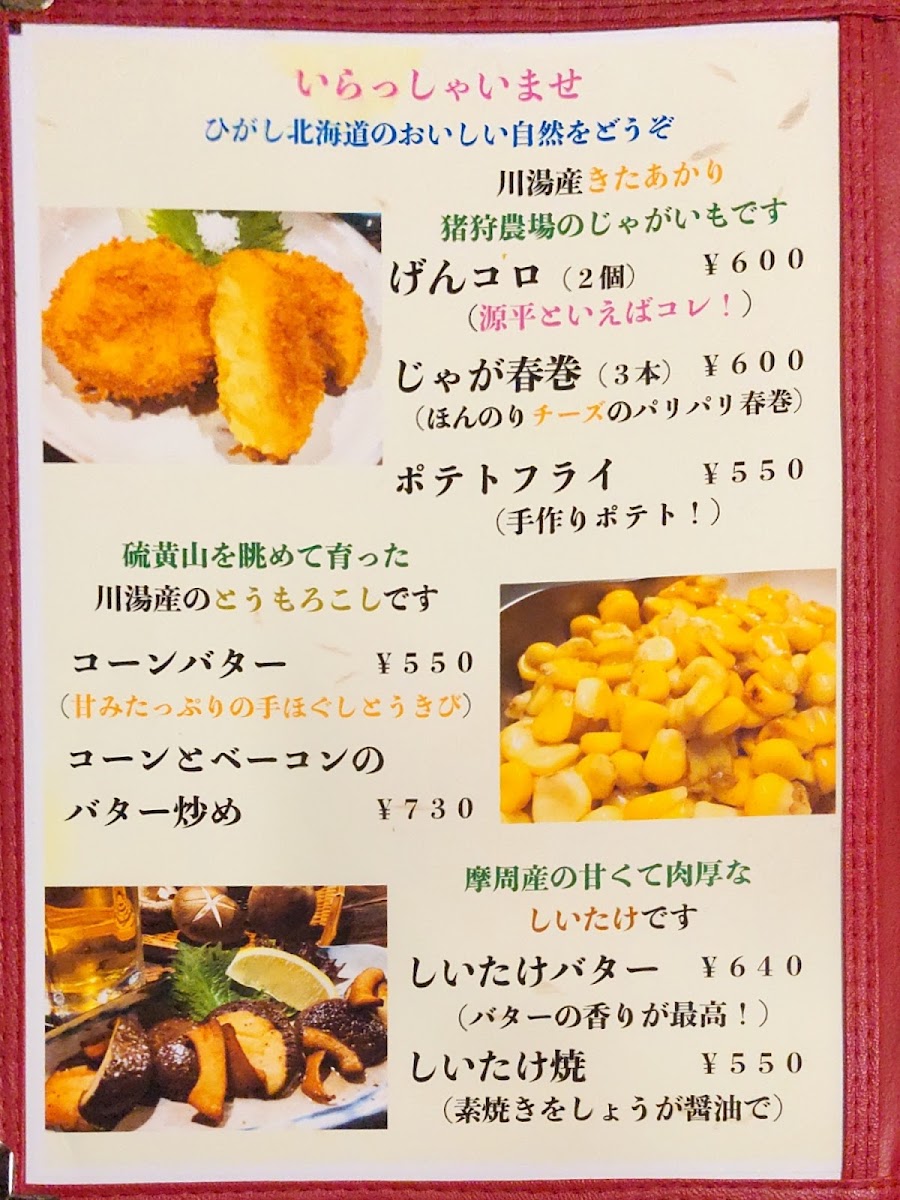 いらっしゃいませ
ひがし北海道のおいしい自然をどうぞ
川湯産きたあかり
猪狩農場のじゃがいもです
げんコロ（２個） ￥６００
（源平といえばコレ！）
じゃが春巻（３本） ￥６００
（ほんのりチーズのパリパリ春巻）
ポテトフライ ￥５５０
（手作りポテト！）
硫黄山を眺めて育った
川湯産のとうもろこしです
コーンバター ￥５５０
（甘みたっぷりの手ほぐしとうきび）
コーンとベーコンの
バター炒め ￥７３０
摩周産の甘くて肉厚な
しいたけです
しいたけバター ￥６４０
（バターの香りが最高！）
しいたけ焼 ￥５５０
（素焼きをしょうが醤油で）